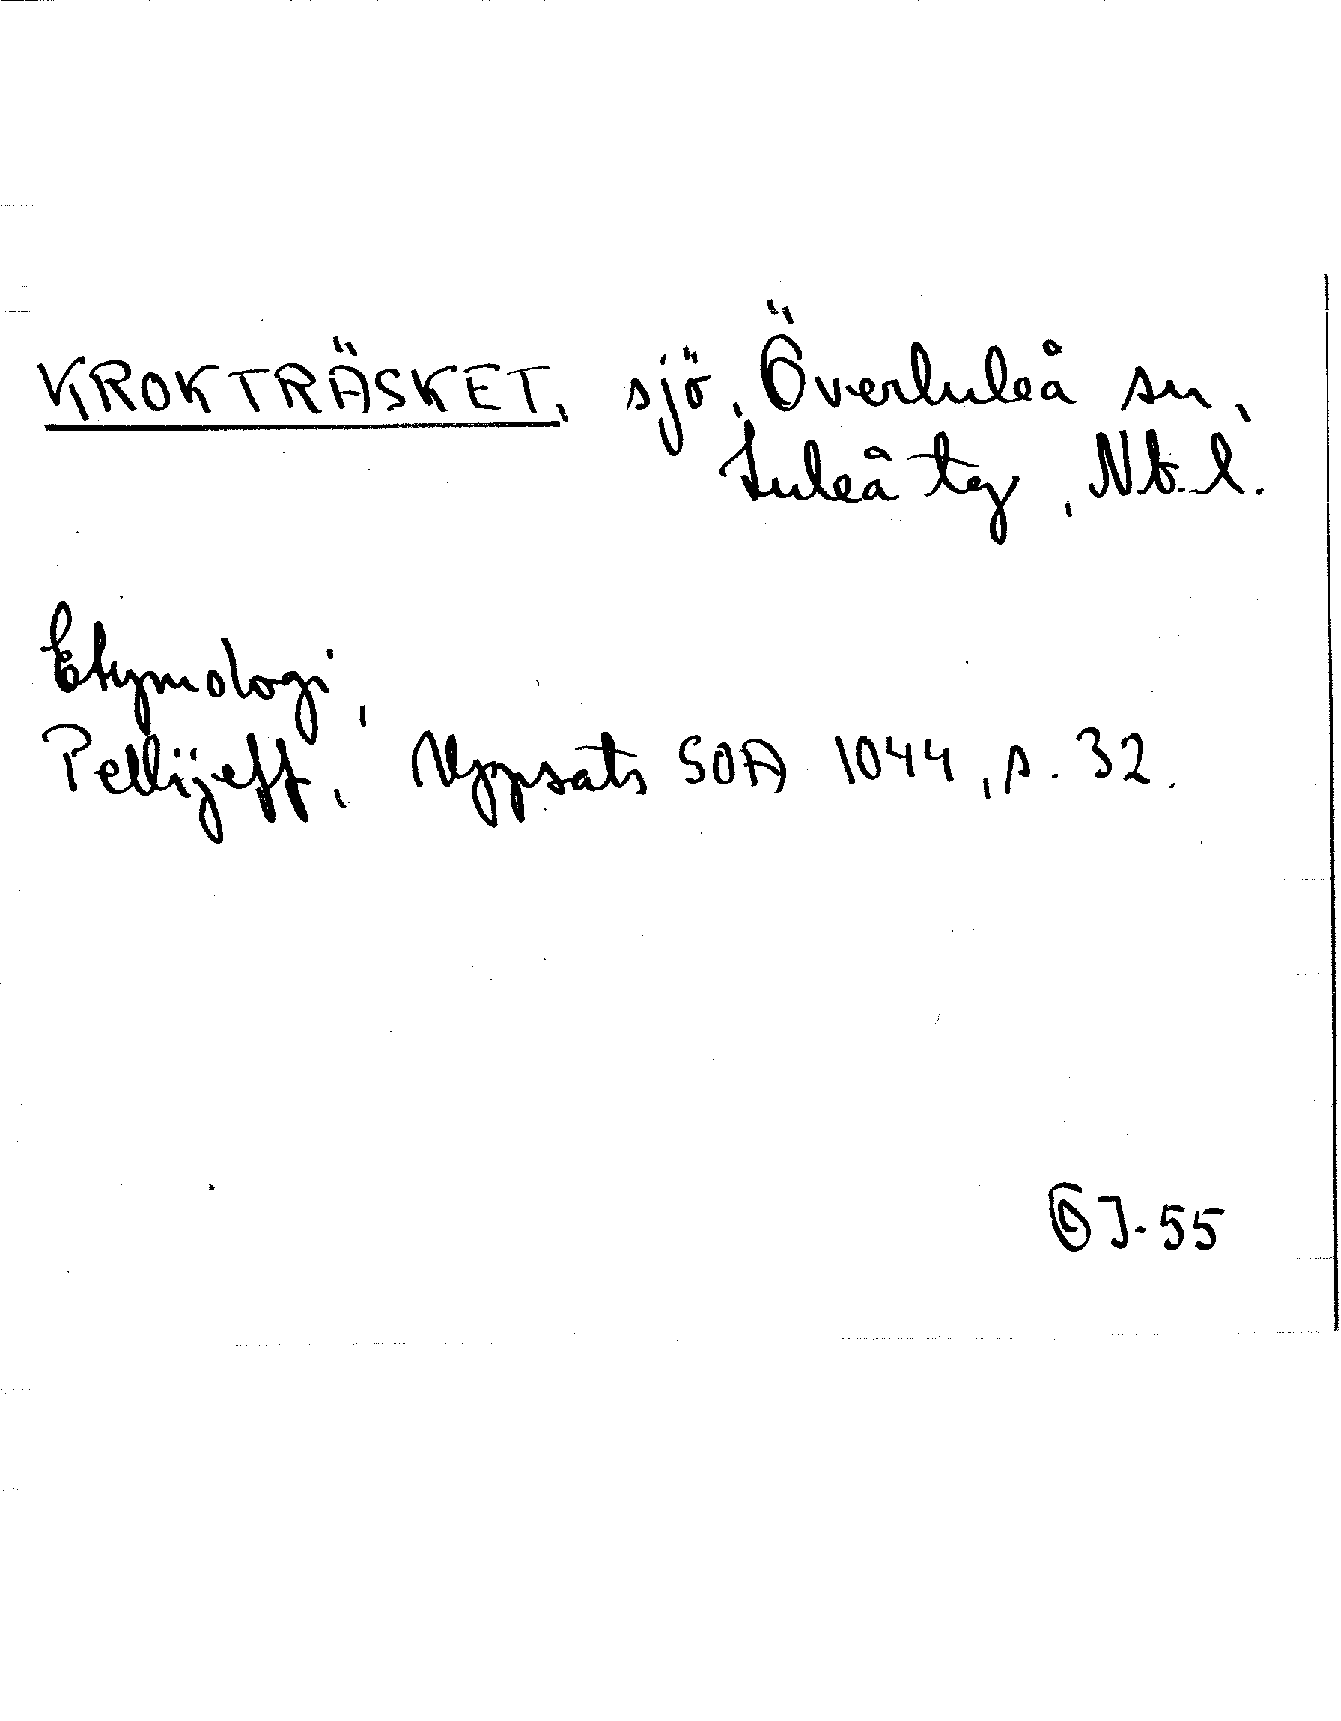 KROKTRÄSKET, sjö, Överluleå sn,
Luleå tg, Nb. l.
Etymologi,
Pellijeff, Uppsats SOA 1044, s. 32.
J-55